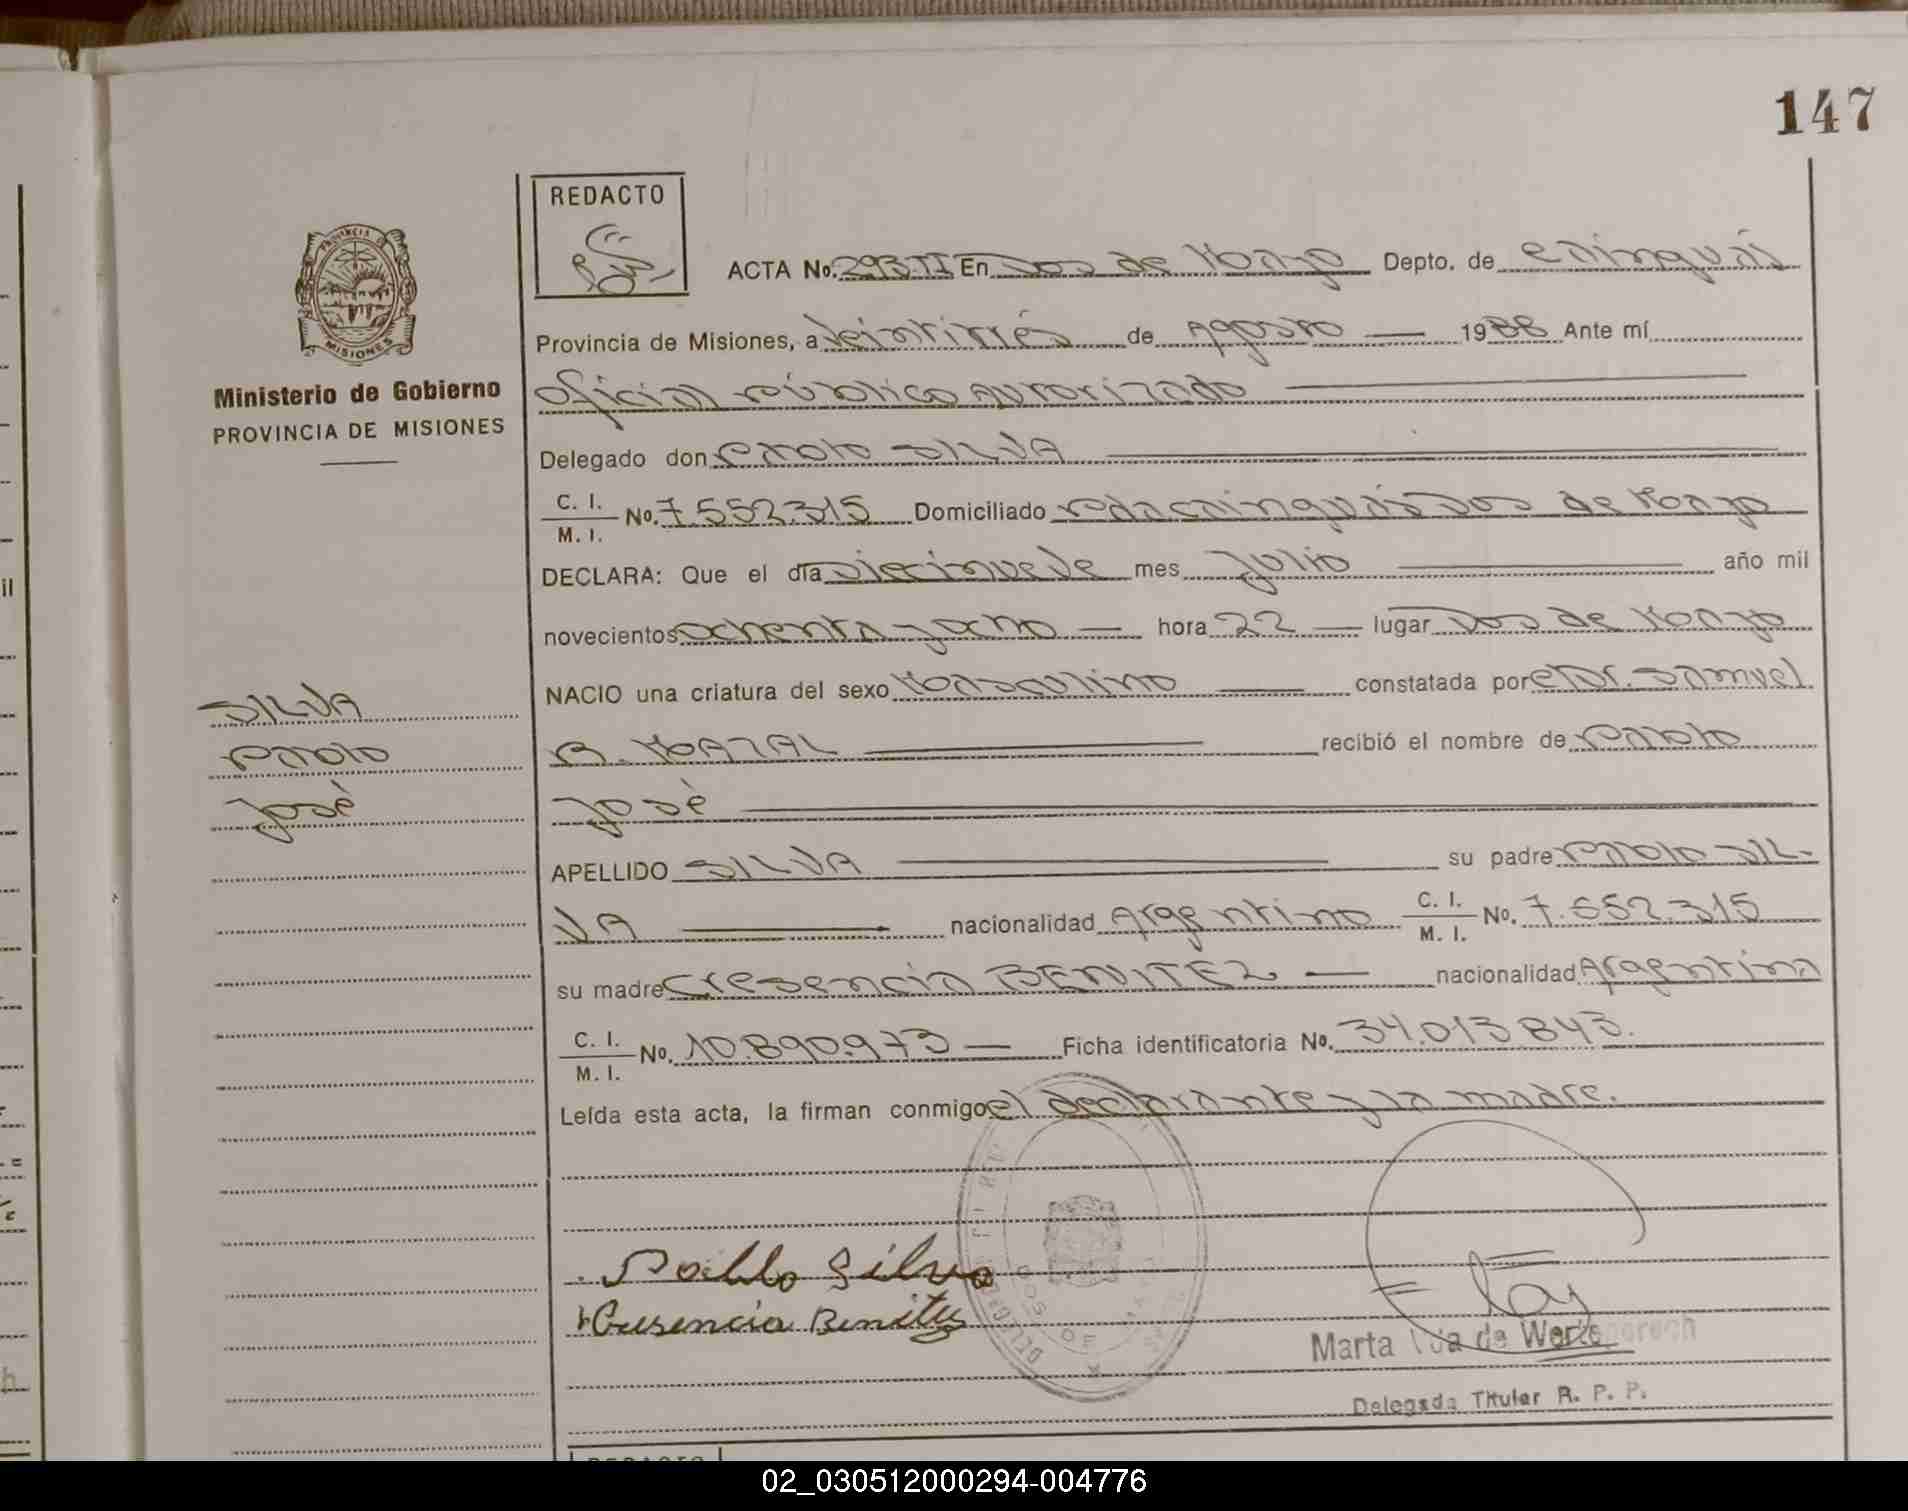 147
REDACTO
ACTA No. 293.II En Dos de Mayo Depto. de Cainguás
Provincia de Misiones, a Veintitrés de Agosto 1988 Ante mí
Oficial Público Autorizado
Ministerio de Gobierno
PROVINCIA DE MISIONES
Delegado don Pablo SILVA
C. I.
M. I. No. 7.552.315 Domiciliado Pcia Cainguás Dos de Mayo
DECLARA: Que el día Diecinueve mes Julio año mil
novecientos ochenta y ocho hora 22 lugar Dos de Mayo
NACIO una criatura del sexo Masculino constatada por el Dr. Samuel
R. MAZAL recibió el nombre de Pablo
José
SILVA
Pablo
José
APELLIDO SILVA su padre Pablo SIL-
VA nacionalidad Argentino C. I.
M. I. No. 7.552.315
su madre Cresencia BENITEZ nacionalidad Argentina
C. I.
M. I. No. 10.890.973 Ficha identificatoria No. 34.013843.
Leída esta acta, la firman conmigo el declarante y la madre.
Pablo Silva
Cresencia Benitez
Marta de
Delegada Titular R. P. P.
02_030512000294-004776